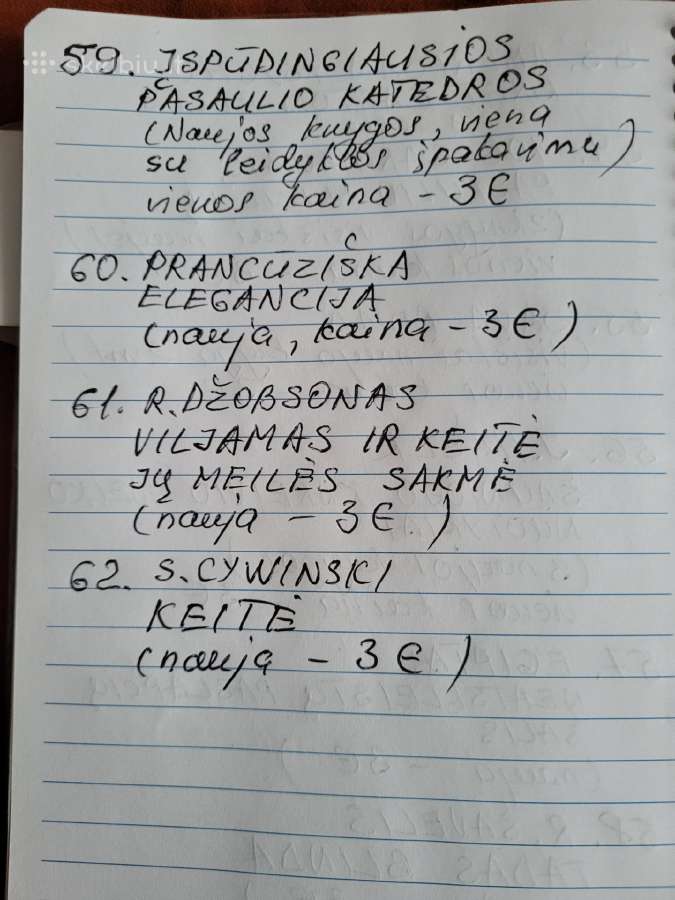 skelbiu.lt
59. ĮSPŪDINGIAUSIOS
PASAULIO KATEDROS
(Naujos knygos, viena
su leidyklos įpakavimu)
vienos kaina - 3 €
60. PRANCŪZIŠKA
ELEGANCIJA
(nauja, kaina - 3 €)
61. R. DŽOBSONAS
VILJAMAS IR KEITĖ
JŲ MEILĖS SAKMĖ
(nauja - 3 €)
62. S. CYWINSKI
KEITĖ
(nauja - 3 €)